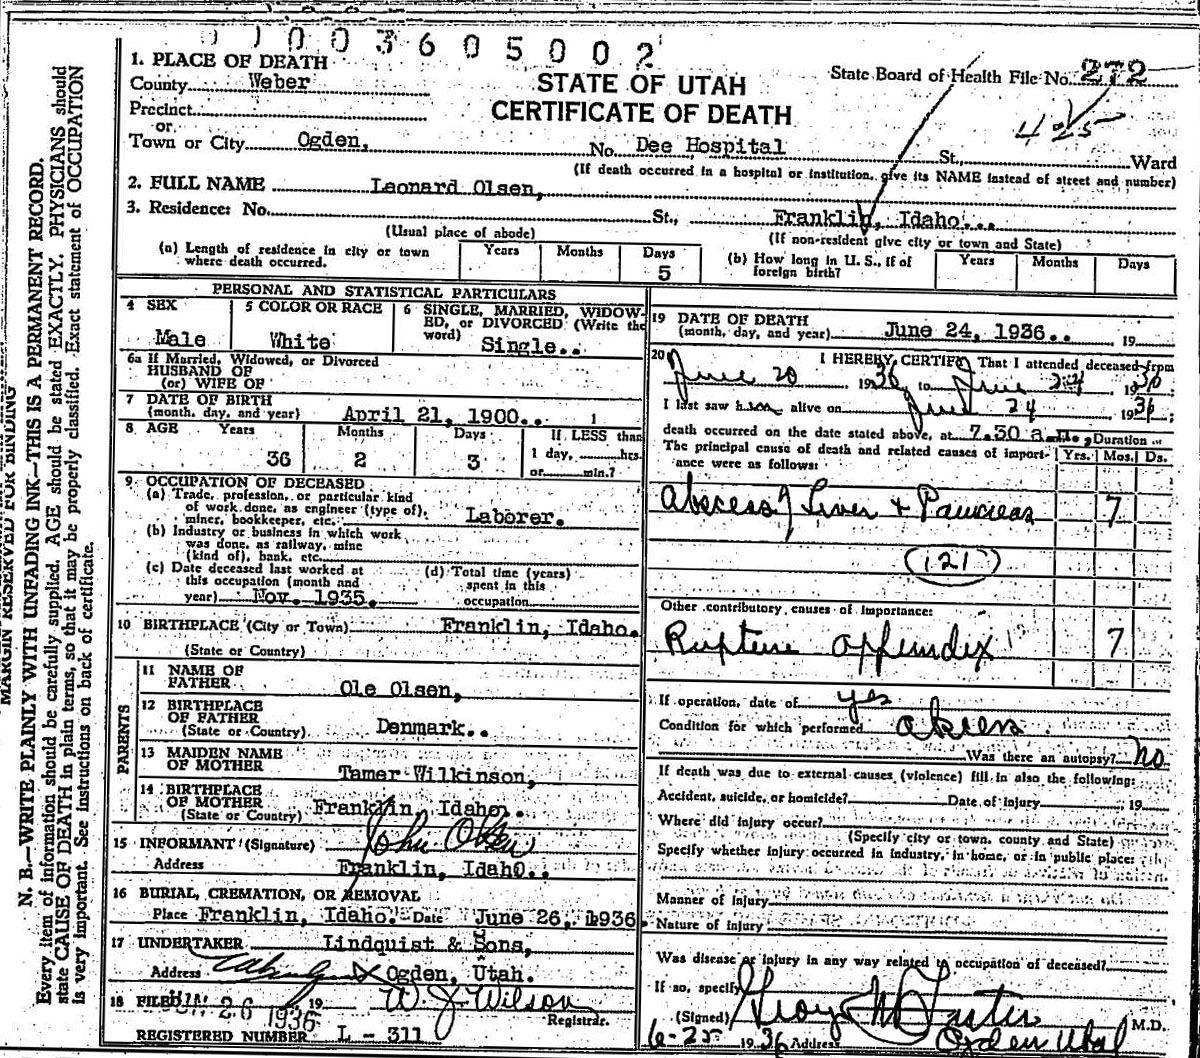 003605002
1. PLACE OF DEATH
County Weber
STATE OF UTAH
CERTIFICATE OF DEATH
State Board of Health File No. 272
Precinct
or
Town or City Ogden, No. Dee Hospital St., Ward
(If death occurred in a hospital or institution, give its NAME instead of street and number)
2. FULL NAME Leonard Olsen,
3. Residence: No. St., Franklin, Idaho...
(Usual place of abode) (If non-resident give city or town and State)
(a) Length of residence in city or town where death occurred. Years Months Days 5
(b) How long in U. S., if of foreign birth? Years Months Days
PERSONAL AND STATISTICAL PARTICULARS
4 SEX Male
5 COLOR OR RACE White
6 SINGLE, MARRIED, WIDOWED, or DIVORCED (Write the word) Single..
6a If Married, Widowed, or Divorced
HUSBAND OF
(or) WIFE OF
7 DATE OF BIRTH
(month, day, and year) April 21, 1900..
8 AGE Years 36 Months 2 Days 3 If LESS than 1 day, hrs. or min.?
9 OCCUPATION OF DECEASED
(a) Trade, profession, or particular kind
of work done, as engineer (type of),
miner, bookkeeper, etc. Laborer.
(b) Industry or business in which work
was done, as railway, mine
(kind of), bank, etc.
(c) Date deceased last worked at
this occupation (month and
year) Nov. 1935.
(d) Total time (years)
spent in this
occupation
10 BIRTHPLACE (City or Town) Franklin, Idaho.
(State or Country)
PARENTS
11 NAME OF
FATHER Ole Olsen,
12 BIRTHPLACE
OF FATHER
(State or Country) Denmark..
13 MAIDEN NAME
OF MOTHER Tamer Wilkinson,
14 BIRTHPLACE
OF MOTHER
(State or Country) Franklin, Idaho.
15 INFORMANT (Signature) John Olsen
Address Franklin, Idaho..
16 BURIAL, CREMATION, OR REMOVAL
Place Franklin, Idaho. Date June 26, 1936
17 UNDERTAKER Lindquist & Sons,
Address Ogden, Utah.
18 FILED JUN 26 1936 19 W. J. Wilson
Registrar.
REGISTERED NUMBER L - 311
19 DATE OF DEATH
(month, day, and year) June 24, 1936.. 19
20 I HEREBY CERTIFY That I attended deceased from
June 20 1936 to June 24, 1936,
I last saw him alive on June 24 1936;
death occurred on the date stated above, at 7.30 a.m., Duration
The principal cause of death and related causes of importance were as follows: Yrs. Mos. Ds.
Abscess of Liver + Pancreas 7
(121)
Other contributory causes of importance:
Rupture appendix 7
If operation, date of yes
Condition for which performed abscess
Was there an autopsy? no
If death was due to external causes (violence) fill in also the following:
Accident, suicide, or homicide? Date of injury 19
Where did injury occur?
(Specify city or town, county and State)
Specify whether injury occurred in industry, in home, or in public place:
Manner of injury
Nature of injury
Was disease or injury in any way related to occupation of deceased?
If so, specify
(Signed) M.D.
6-25 1936 Address Ogden Utah
MARGIN RESERVED FOR BINDING
N. B.—WRITE PLAINLY WITH UNFADING INK—THIS IS A PERMANENT RECORD.
Every item of information should be carefully supplied. AGE should be stated EXACTLY. PHYSICIANS should
state CAUSE OF DEATH in plain terms, so that it may be properly classified. Exact statement of OCCUPATION
is very important. See instructions on back of certificate.